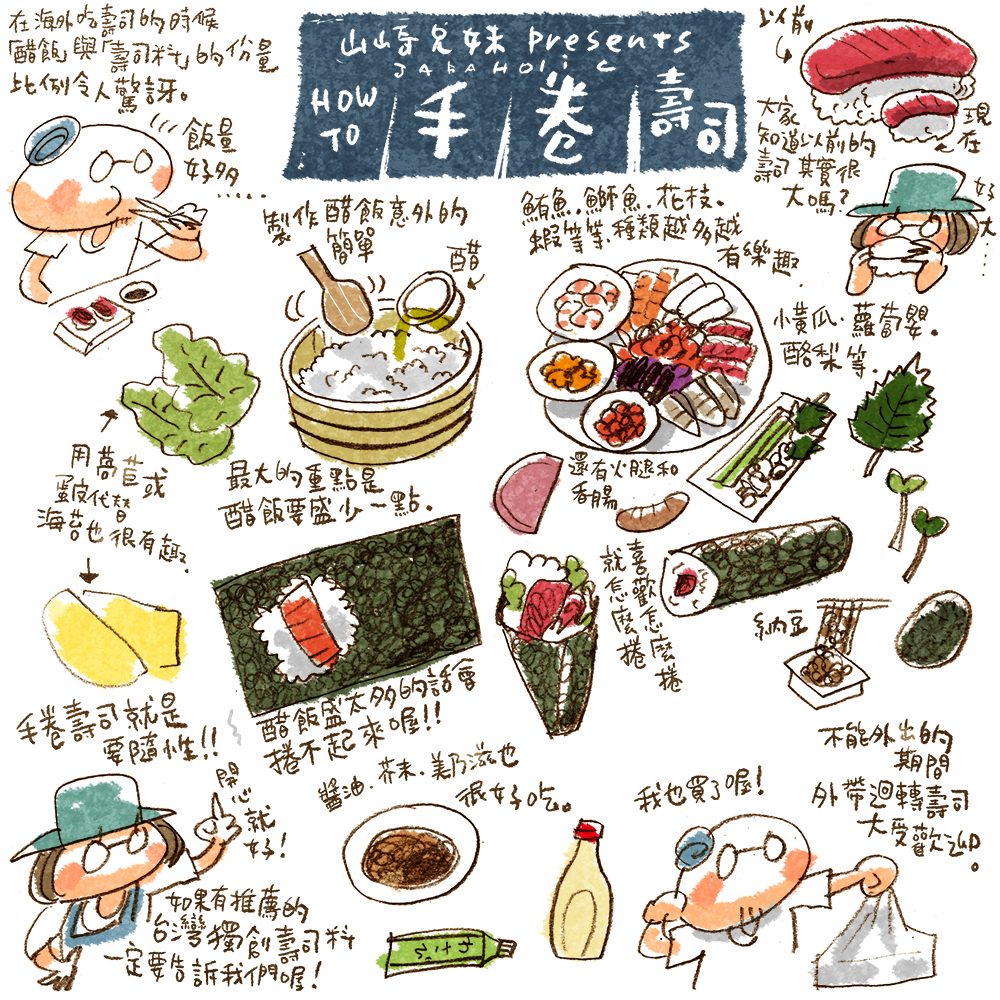 在海外吃壽司的時候
「醋飯」與「壽司料」的份量
比例令人驚訝。
飯量
好多
.....
山崎兄妹 presents
JAPAHOLiC
HOW
TO
手卷壽司
以前
現在
大家
知道以前的
壽司其實很
大嗎？
好大....
製作醋飯意外的
簡單
醋
鮪魚.鰤魚.花枝.
蝦等等.種類越多越
有樂趣.
小黃瓜.蘿蔔嬰.
酪梨等.
用萵苣或
蛋皮代替
海苔也很有趣.
最大的重點是
醋飯要盛少一點.
還有火腿和
香腸
喜歡怎麼捲
就怎麼捲
納豆
手卷壽司就是
要隨性!!
醋飯盛太多的話會
捲不起來喔!!
開心就好!
醬油.芥末.美乃滋也
很好吃。
我也買了喔!
不能外出的
期間
外帶迴轉壽司
大受歡迎。
如果有推薦的
台灣獨創壽司料
一定要告訴我們喔!
わさび